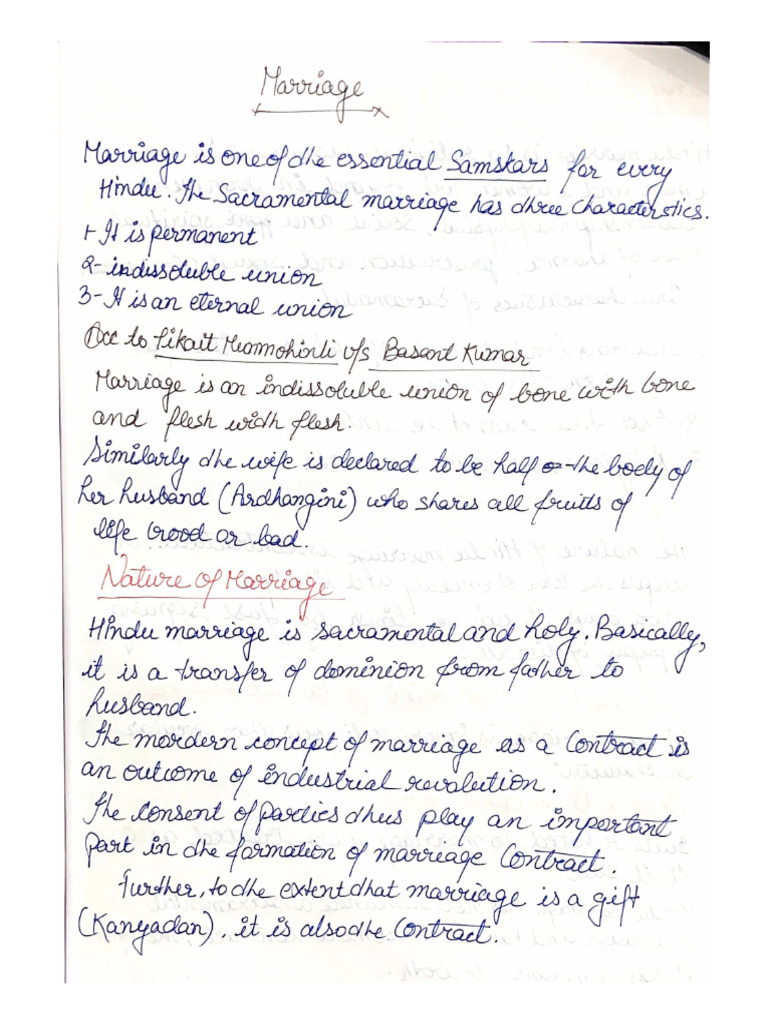 Marriage
Marriage is one of the essential Samskars for every
Hindu. The Sacramental marriage has three characterstics.
1- It is permanent
2- indissoluble union
3- It is an eternal union
Acc to Tikait Munmohinli v/s Basant Kumar
Marriage is an indissoluble union of bone with bone
and flesh with flesh.
Similarly the wife is declared to be half of the body of
her husband (Ardhangini) who shares all fruits of
life Good or bad.
Nature of Marriage
Hindu marriage is sacramental and holy. Basically,
it is a transfer of dominion from father to
husband.
The mordern concept of marriage as a Contract is
an outcome of industrial revolution.
The consent of parties thus play an important
part in the formation of marriage Contract.
Further, to the extent that marriage is a gift
(Kanyadan), it is also the Contract.